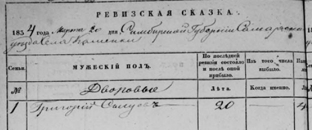 РЕВИЗСКАЯ СКАЗКА.
1854 года Марта 20 дня Симбирской Губерніи Самарскаго
уезда села Каменки
Семьи.
МУЖЕСКІЙ ПОЛЪ.
По послѣдней ревизіи состояло и послѣ оной прибыло.
Изъ того числа выбыло.
№
Дворовые
Лѣта.
Когда именно.
1 Григорій 20